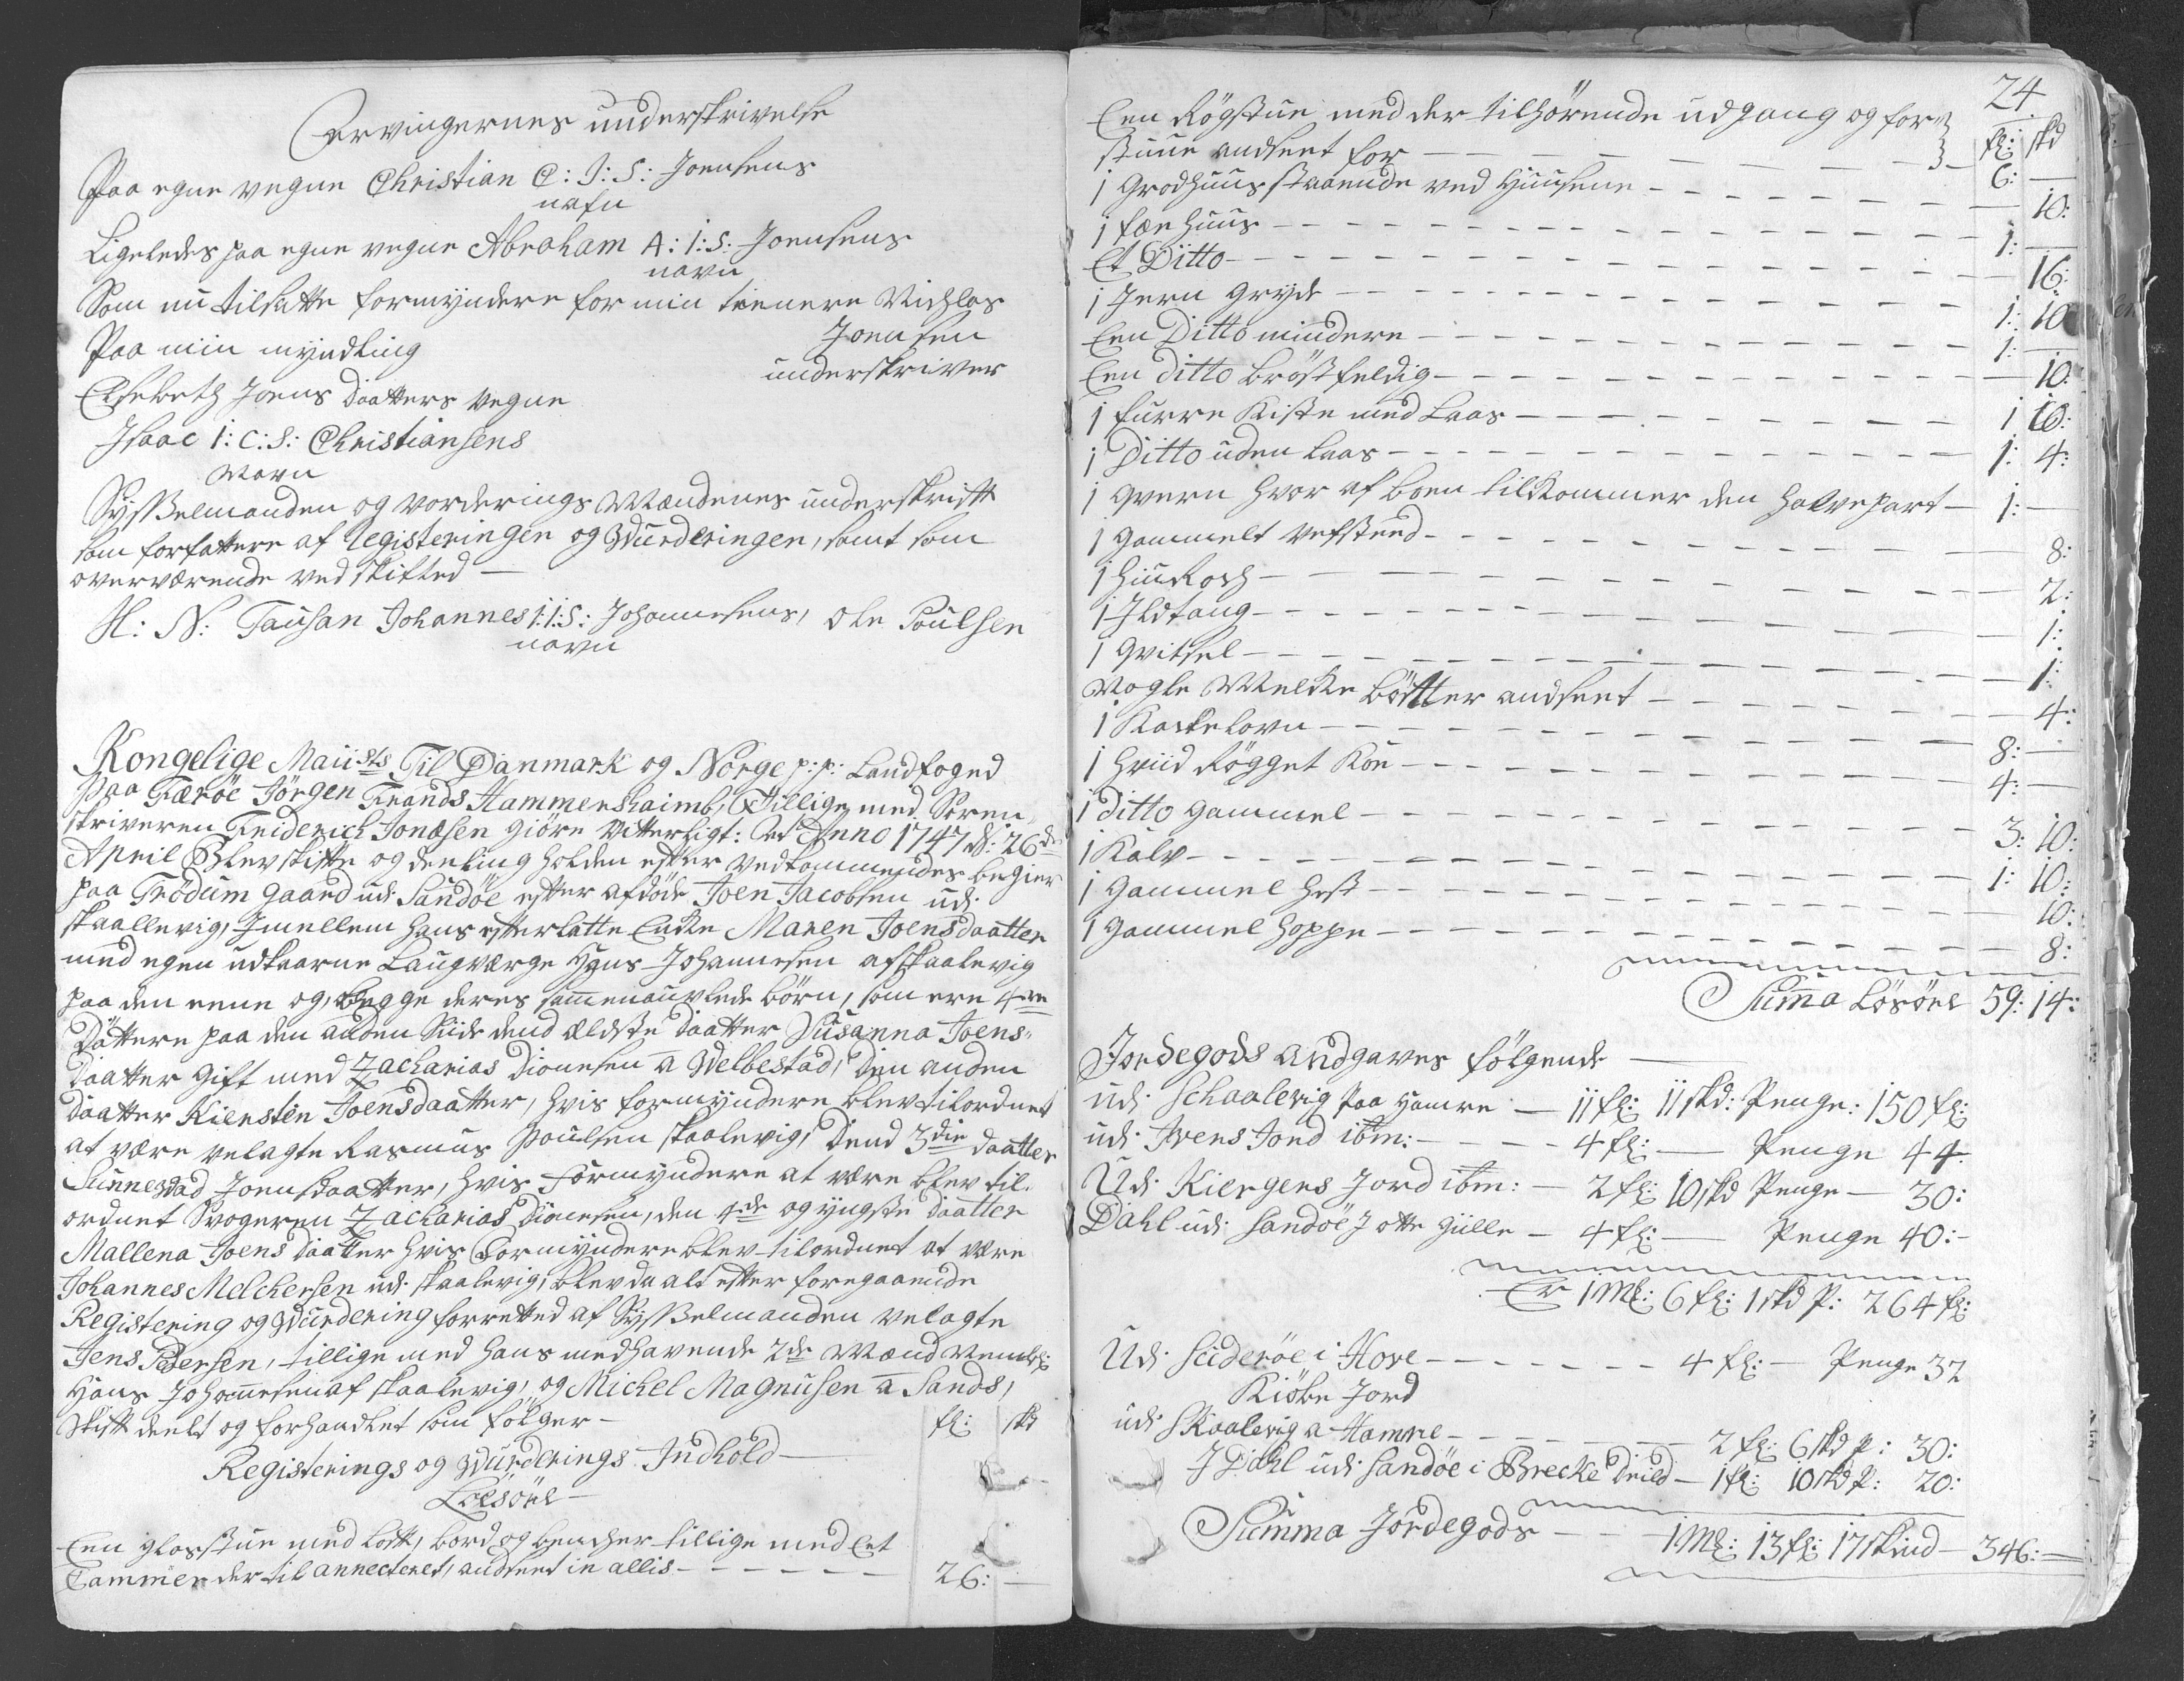 Ervingernes underskrivelse
Paa egne vegne Christian C: I: S: Joensens
nafn
Ligeledes paa egne vegne Abraham A: I: S: Joensens
navn
Som nu tilsatte formyndere for min tienere Nichlas
Joensen
Paa min myndling
underskriver
Elsebeth Joens Daatters vegne
Isaac I: C: S: Christiansens
Navn
Sysselmanden og vorderings Mændenes underskrift
som forfattere af Registeringen og Wurderingen, samt som
overværende ved skifted —
H: N: Tausan Johannes I: I: S: Johannesens, Ole Poulsen
navn
Kongelige Maiists Til Danmark og Norge p: p: Landfoged
paa Færöe Jörgen Frands Hammershaimb, Tillige med Soren
skriveren Friderich Jonæsen giöre Vitterligt: At Anno 1747 d: 26de
April Blev skifte og deeling holden efter vedkommendes begier
paa Trödum gaard udi Sandöe efter afdöde Joen Jacobsen udi
skaallevig, Imellem hans efterlatte Encke Maren Joensdaatter
med egen udkaarne Laugværge Hans Johannesen af Skaalevig
paa den eene og, begge deres sammenauvlede börn, som ere 4re
Döttere paa den anden Siide dend ældste Daatter Susanna Joens-
daatter gift med Zacharias Dionesen a Welbestad, den anden
daatter Kiersten Joensdaatter, hvis formyndere blev tilordnet
at være velagte Rasmus Poulsen Skaalevig, dend 3die daatter
Sunnevad Joensdaatter, hvis Formyndere at være blev til-
ordnet Svogeren Zacharias Dionesen, den 4de og yngste daatter
Mallena Joens daatter hvis Formyndere blev tilordnet at være
Johannes Melchersen udi skaalevig, blev da alt efter foregaaende
Registering og Wurdering forretted af Sysselmanden velagte
Jens Pedersen, tillige med hans medhavende 2de Mænd Nembl:
Hans Johannesen af skaalevig, og Michel Magnusen a Sands,
Skift deelt og forhandlet som fölger — fl: skd
Registerings og Wurderings Indhold —
Loesöre —
Een glasstue med lott, bord og bencher tillige med Eet
Cammer der til annecteret, andseet in allis — 26: —
24
Een Rögstue med der tilhörende udgang og for- fl: skd
stuue andseet for — 6: —
1 Grodhuus staaende ved Huusene — 10:
1 fæe huus — 1: —
Et Ditto — 16:
1 Jern gryde — 1: 10
Een Ditto mindere — 1: —
Een ditto bröstfeldig — 10:
1 furre Kiste med Laas — 1 16:
1 Ditto uden laas — 1: 4:
1 qvern hvor af boen tilkommer den halvepart — 1: —
1 gammelt vefstend — 8:
1 — 2:
1 Ildtang — 1:
1 Gvitsel — 1:
Nogle Melcke bötter andseet — 4:
1 Kackelovn — 8: —
1 Hviid Rögget Koe — 4: —
1 ditto gammel — 3: 10:
1 Kalv — 1: 10:
1 gammel Hest — 10:
1 gammel hoppe — 8:
Suma Lösöre 59: 14:
Jordegods andgaves fölgende —
udi Schaalevig paa Hamre — 11 fl: 11 skd: Penge: 150 fl:
udi Ivens Jord ibm: — 4 fl: — Penge 44
Udi Kiergens Jord ibm: — 2 fl: 10 skd Penge — 30:
Dahl udi Sandöe J otte gülle — 4 fl: — Penge 40: —
Er 1 Mk: 6 fl: 1 skd P: 264 fl:
Udi Suderöe i Hove — 4 fl: — Penge 32
Kiöbe Jord
udi Skaalevig a Hamre — 2 fl: 6 skd P: 30:
J Dahl udi Sandöe i Brecke Deild — 1 fl: 10 skd P: 20:
Summa Jordegods — 1 Mk: 13 fl: 17 skind — 346: —